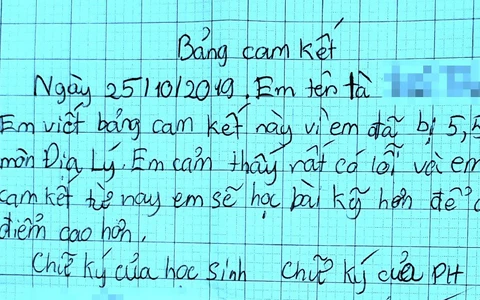 Bảng cam kết
Ngày 25/10/2019. Em tên là
Em viết bảng cam kết này vì em đã bị 5,5
môn Địa Lý. Em cảm thấy rất có lỗi và em
cam kết từ nay em sẽ học bài kỹ hơn để
điểm cao hơn.
Chữ ký của học sinh Chữ ký của PH